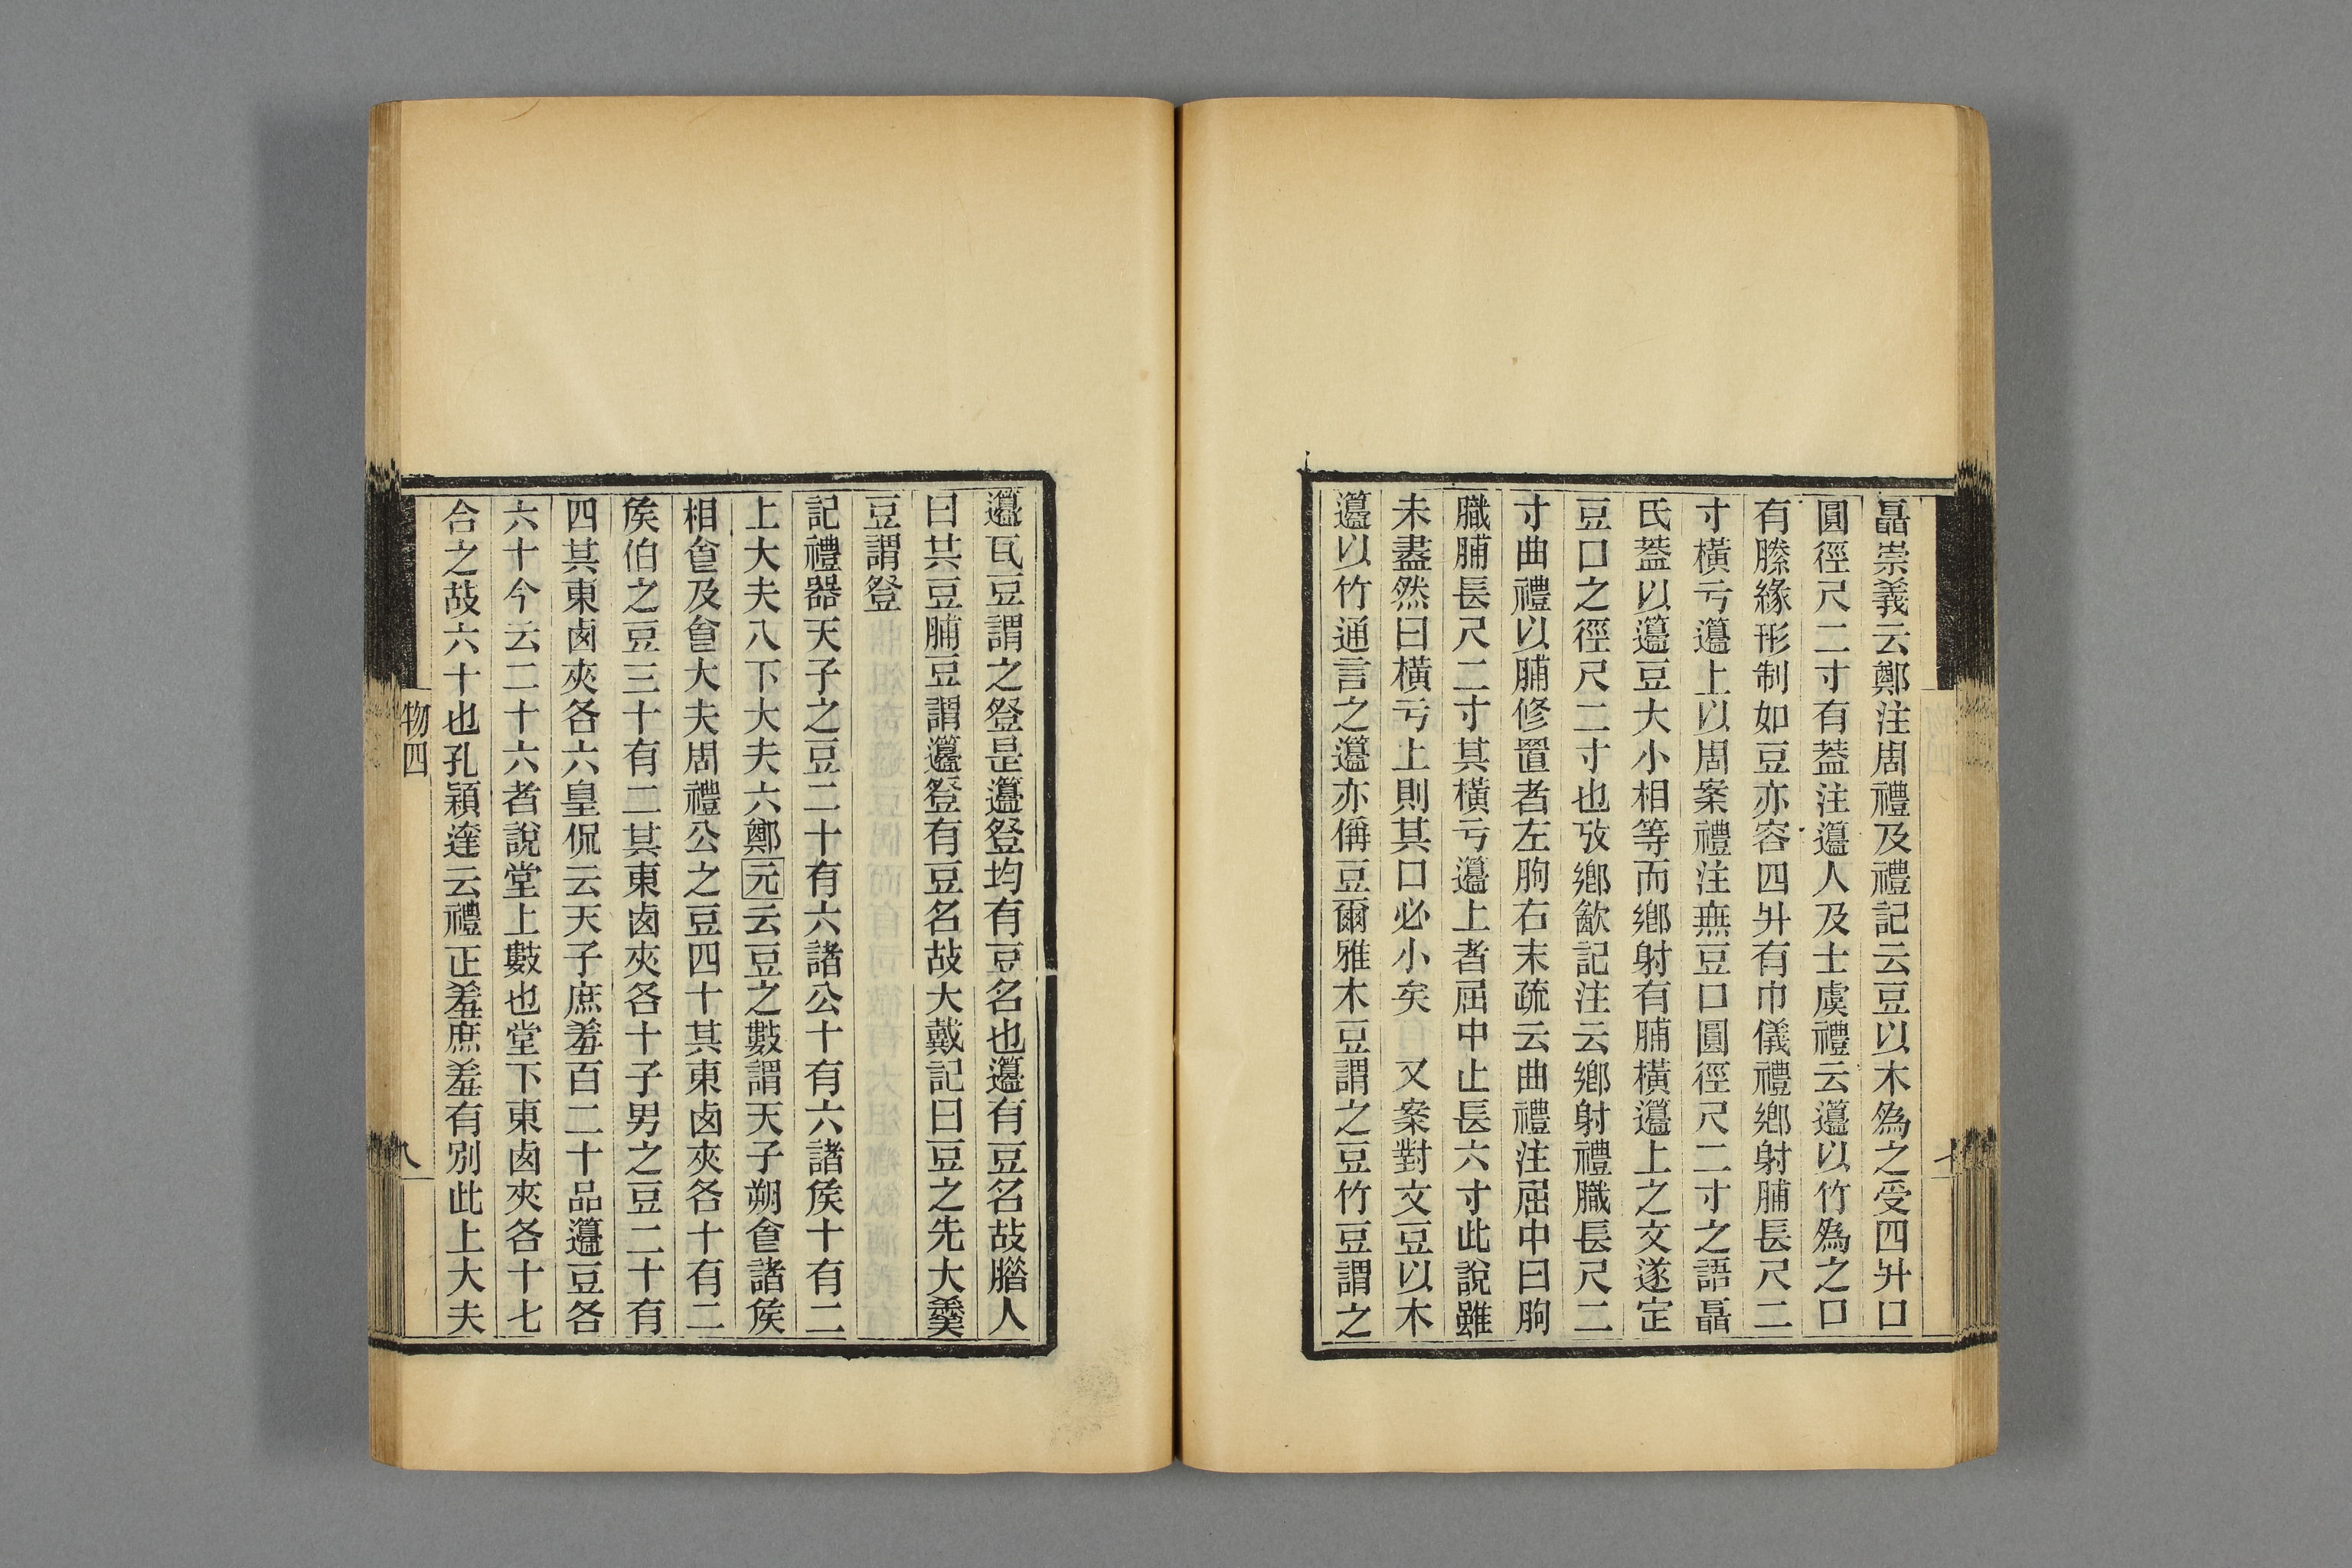 聶崇義云鄭注周禮及禮記云豆以木爲之受四升口
圓徑尺二寸有葢注籩人及士虞禮云籩以竹爲之口
有縢緣形制如豆亦容四升有巾儀禮鄉射脯長尺二
寸橫亏籩上以周案禮注無豆口圓徑尺二寸之語聶
氏葢以籩豆大小相等而鄉射有脯橫籩上之文遂定
豆口之徑尺二寸也攷鄉飮記注云鄉射禮膱長尺二
寸曲禮以脯修置者左朐右末疏云曲禮注屈中曰朐
膱脯長尺二寸其橫亏籩上者屈中止長六寸此說雖
未盡然曰橫亏上則其口必小矣　又案對文豆以木
籩以竹通言之籩亦偁豆爾雅木豆謂之豆竹豆謂之
籩瓦豆謂之登是籩登均有豆名也籩有豆名故腊人
曰其豆脯豆謂籩登有豆名故大戴記曰豆之先大羹
豆謂登
記禮器天子之豆二十有六諸公十有六諸矦十有二
上大夫八下大夫六鄭元云豆之數謂天子朔食諸矦
相食及食大夫周禮公之豆四十其東㢴夾各十有二
矦伯之豆三十有二其東㢴夾各十子男之豆二十有
四其東㢴夾各六皇侃云天子庶羞百二十品籩豆各
六十今云二十六者說堂上數也堂下東㢴夾各十七
合之故六十也孔穎達云禮正羞庶羞有別此上大夫
物四
八